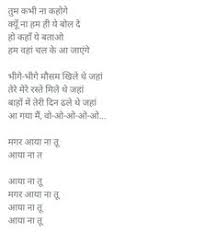 तुम कभी ना कहोगे
क्यूँ ना हम ही ये बोल दे
हो कहाँ ये बताओ
हम वहां चल के आ जाएंगे
भीगे-भीगे मौसम खिले थे जहां
तेरे मेरे रस्ते मिले थे जहां
बाहों में तेरी दिन ढले थे जहां
आ गया मैं, वो-ओ-ओ-ओ-ओ...
मगर आया ना तू
आया ना त
आया ना तू
मगर आया ना तू
आया ना तू
आया ना तू